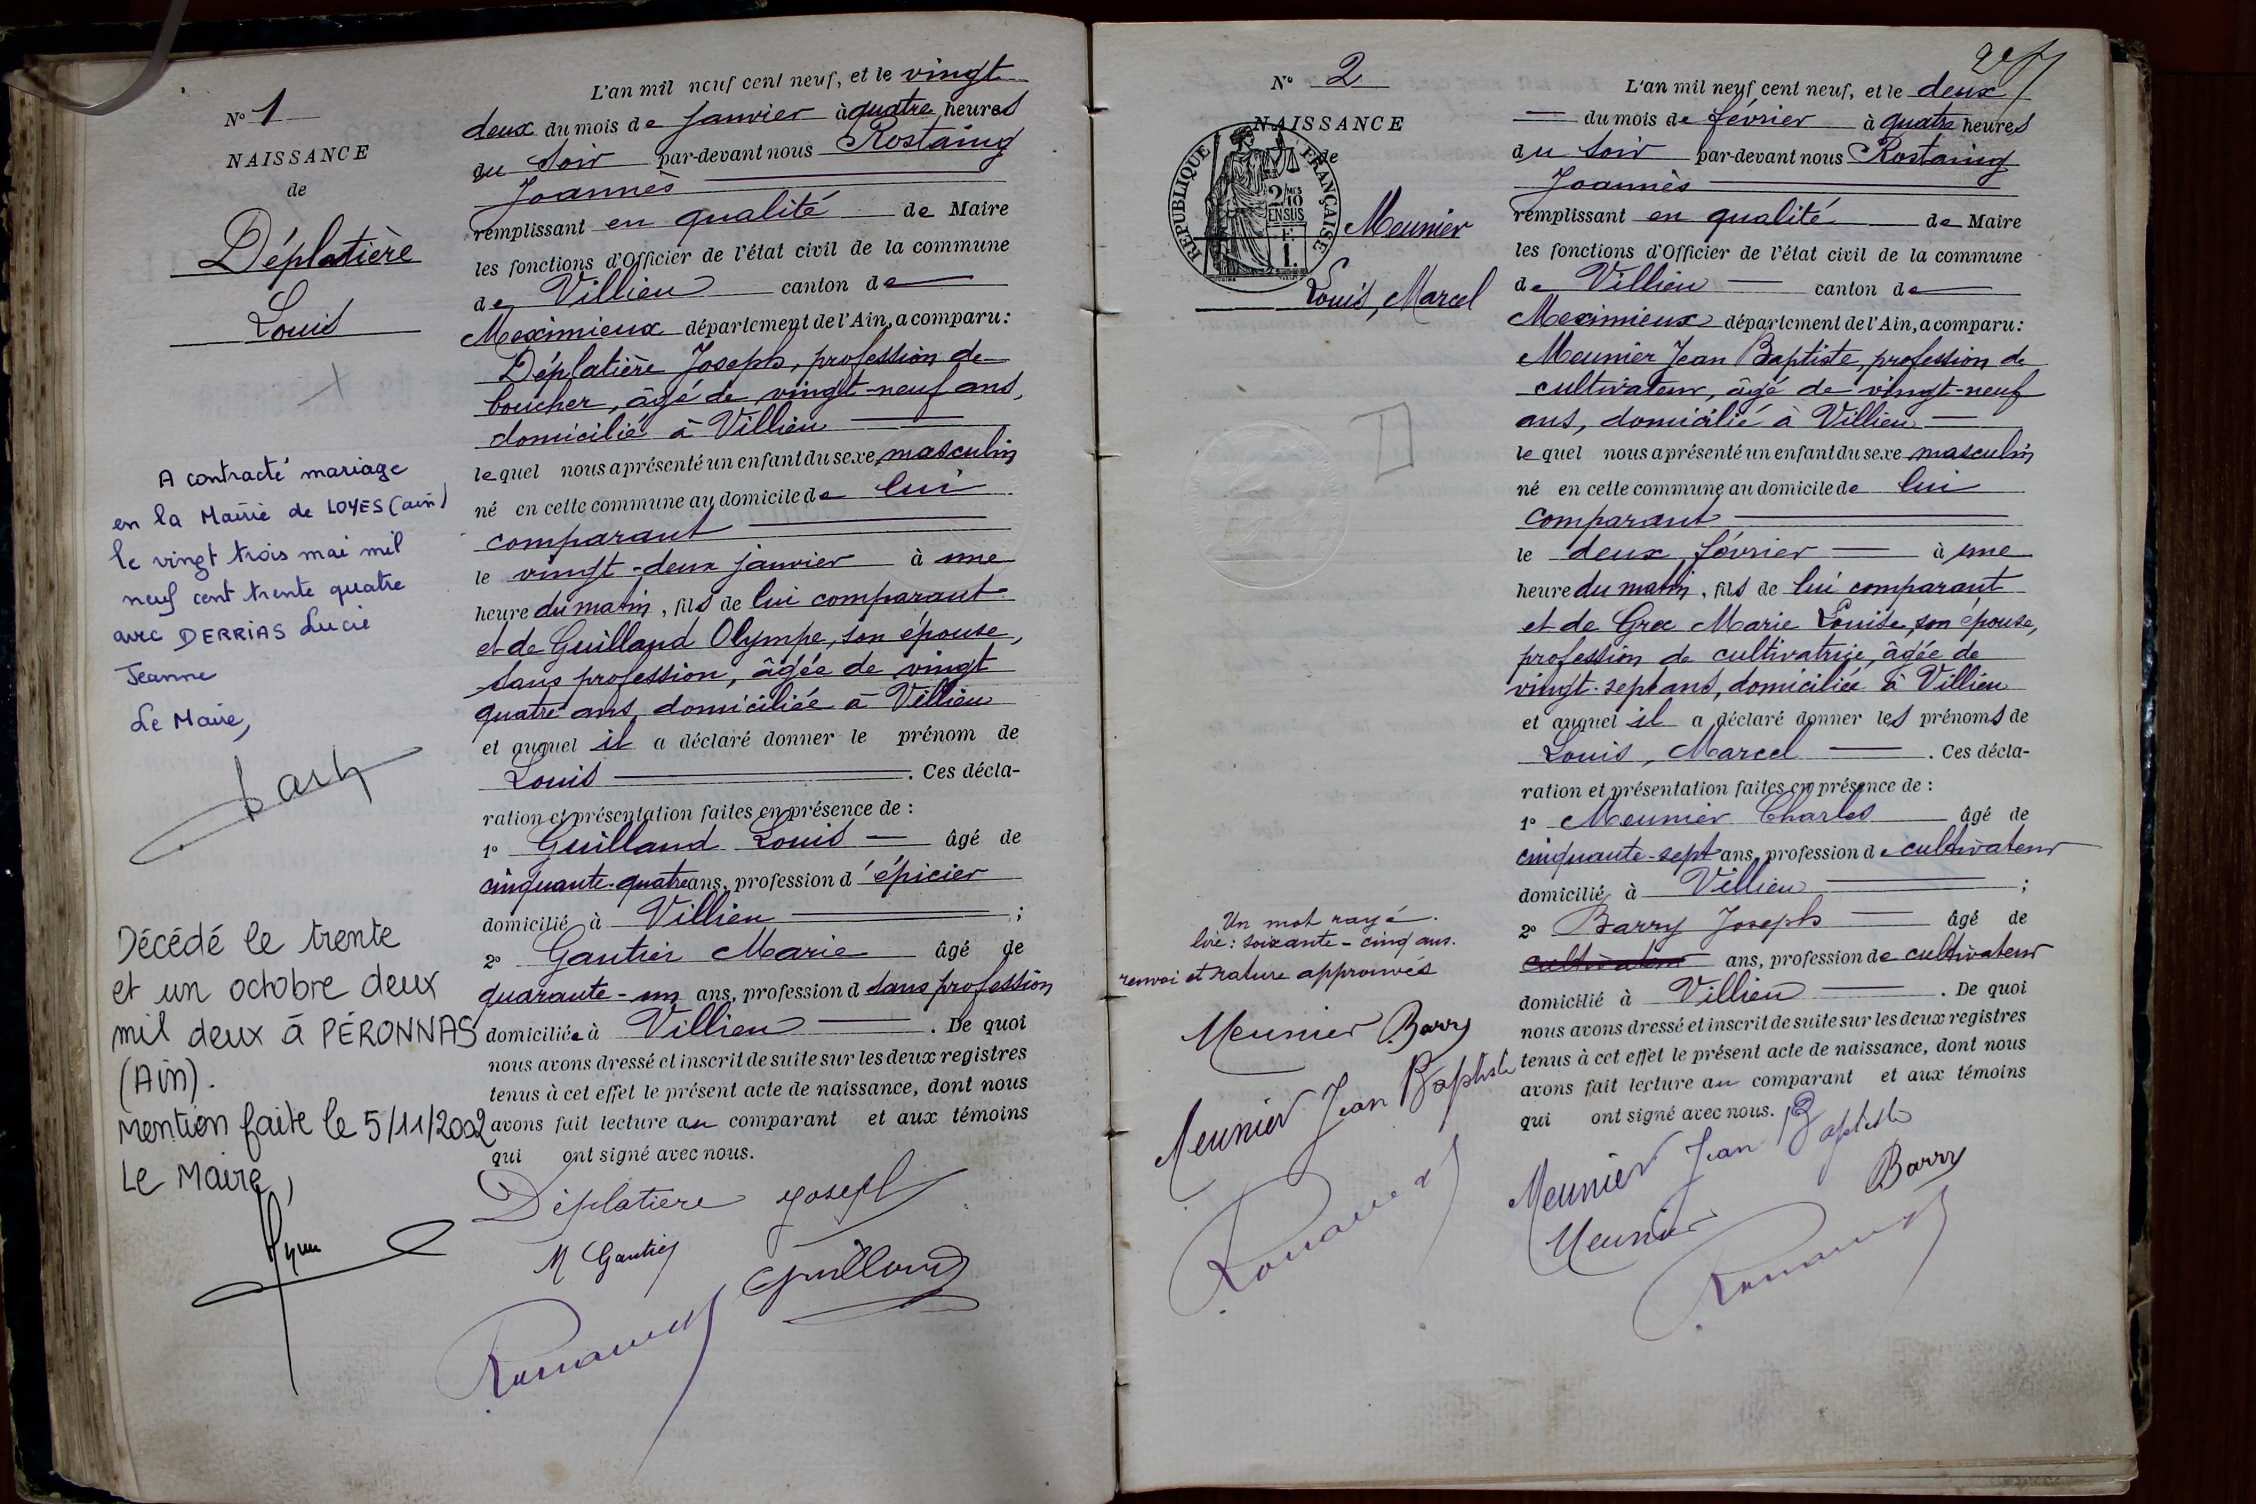 N° 1
NAISSANCE
de
Déplatière
Louis
A contracté mariage
en la Mairie de LOYES (ain)
le vingt trois mai mil
neuf cent trente quatre
avec DERRIAS Lucie
Jeanne
Le Maire,
Décédé le trente
et un octobre deux
mil deux à PÉRONNAS
(Ain).
Mention faite le 5/11/2002
Le Maire,
L'an mil neuf cent neuf, et le vingt
deux du mois de janvier à quatre heures
du soir par-devant nous Rostaing
Joannès
remplissant en qualité de Maire
les fonctions d'Officier de l'état civil de la commune
de Villieu canton de
Meximieux département de l'Ain, a comparu:
Déplatière Joseph, profession de
boucher, âgé de vingt-neuf ans,
domicilié à Villieu
lequel nous a présenté un enfant du sexe masculin
né en cette commune au domicile de lui
comparant
le vingt-deux janvier à une
heure du matin, fils de lui comparant
et de Guilland Olympe, son épouse,
sans profession, âgée de vingt
quatre ans, domiciliée à Villieu
et auquel il a déclaré donner le prénom de
Louis . Ces décla-
ration et présentation faites en présence de :
1° Guilland Louis âgé de
cinquante-quatre ans, profession d'épicier
domicilié à Villieu ;
2° Gautier Marie âgé de
quarante-un ans, profession d sans profession
domiciliée à Villieu . De quoi
nous avons dressé et inscrit de suite sur les deux registres
tenus à cet effet le présent acte de naissance, dont nous
avons fait lecture au comparant et aux témoins
qui ont signé avec nous.
Déplatière Joseph
M Gautier Guilland
N° 2
NAISSANCE
de
REPUBLIQUE FRANÇAISE
2/10 MES
EN SUS
1.
Meunier
Louis, Marcel
Un mot rayé.
lire: soixante-cinq ans.
renvoi et rature approuvés
Meunier Barry
Meunier Jean Baptiste
L'an mil neuf cent neuf, et le deux
du mois de février à quatre heures
du soir par-devant nous Rostaing
Joannès
remplissant en qualité de Maire
les fonctions d'Officier de l'état civil de la commune
de Villieu canton de
Meximieux département de l'Ain, a comparu:
Meunier Jean Baptiste, profession de
cultivateur, âgé de vingt-neuf
ans, domicilié à Villieu
lequel nous a présenté un enfant du sexe masculin
né en cette commune au domicile de lui
comparant
le deux février à une
heure du matin, fils de lui comparant
et de Grex Marie Louise, son épouse,
profession de cultivatrice, âgée de
vingt-sept ans, domiciliée à Villieu
et auquel il a déclaré donner les prénoms de
Louis, Marcel . Ces décla-
ration et présentation faites en présence de :
1° Meunier Charles âgé de
cinquante-sept ans, profession de cultivateur
domicilié à Villieu ;
2° Barry Joseph âgé de
cultivateur ans, profession de cultivateur
domicilié à Villieu . De quoi
nous avons dressé et inscrit de suite sur les deux registres
tenus à cet effet le présent acte de naissance, dont nous
avons fait lecture au comparant et aux témoins
qui ont signé avec nous.
Meunier Jean Baptiste
Barry
Meunier